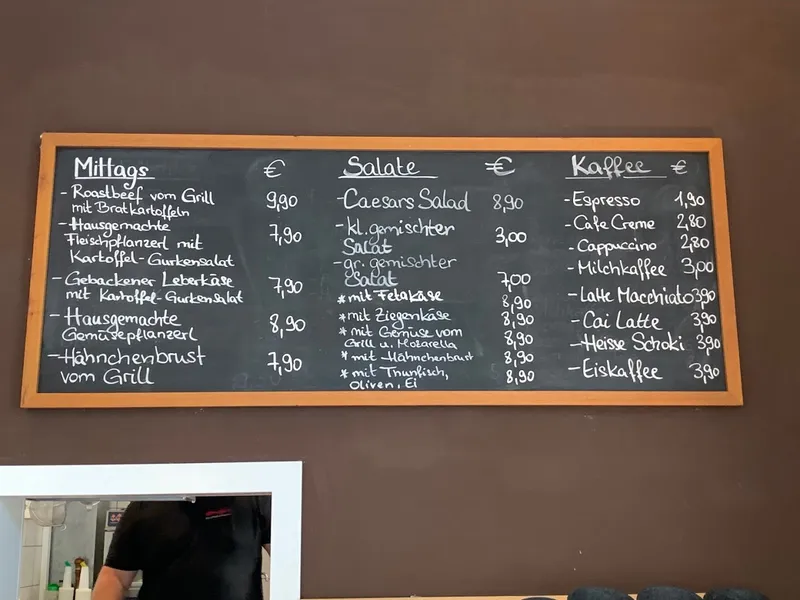 Mittags €
- Roastbeef vom Grill 9,90
mit Bratkartoffeln
- Hausgemachte 7,90
Fleischpflanzerl mit
Kartoffel-Gurkensalat
- Gebackener Leberkäse 7,90
mit Kartoffel-Gurkensalat
- Hausgemachte 8,90
Gemüsepflanzerl
- Hähnchenbrust 7,90
vom Grill
Salate €
- Caesars Salad 8,90
- kl. gemischter 3,00
Salat
- gr. gemischter
Salat 7,00
* mit Fetakäse 8,90
* mit Ziegenkäse 8,90
* mit Gemüse vom
Grill u. Mozarella 8,90
* mit Hähnchenbrust 8,90
* mit Thunfisch, 8,90
Oliven, Ei
Kaffee €
- Espresso 1,90
- Cafe Creme 2,80
- Cappuccino 2,80
- Milchkaffee 3,00
- Latte Macchiato 3,90
- Cai Latte 3,90
- Heisse Schoki 3,90
- Eiskaffee 3,90